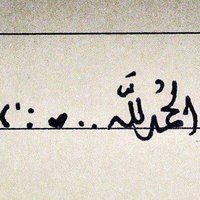 الحمدُ للَّه .. ♥ :